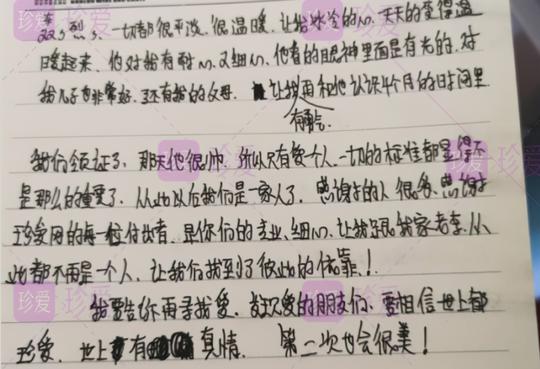 烈。一切都很平淡,很温暖,让我冰冷的心,天天的变得温
暖起来,他对我有耐心又细心,他看我的眼神里面是有光的,对
我儿子也非常好,还有我的父母。让我再和他认识4个月的时间里
有勇气
我们领证了,那天他很帅,所以只有数个人,一切的标准都显得不
是那么的重要了,从此以后我们是一家人了,感谢的人很多,感谢
珍爱网的每一位付出者,是你们的专业、细心,让我跟我家老李,从
此都不再是一个人,让我们找到了彼此的依靠,!
我要告诉再寻找爱,喜欢爱的朋友们,要相信世上都
珍爱,世上有真情,第二次也会很美!
珍爱
珍爱
珍爱
珍爱